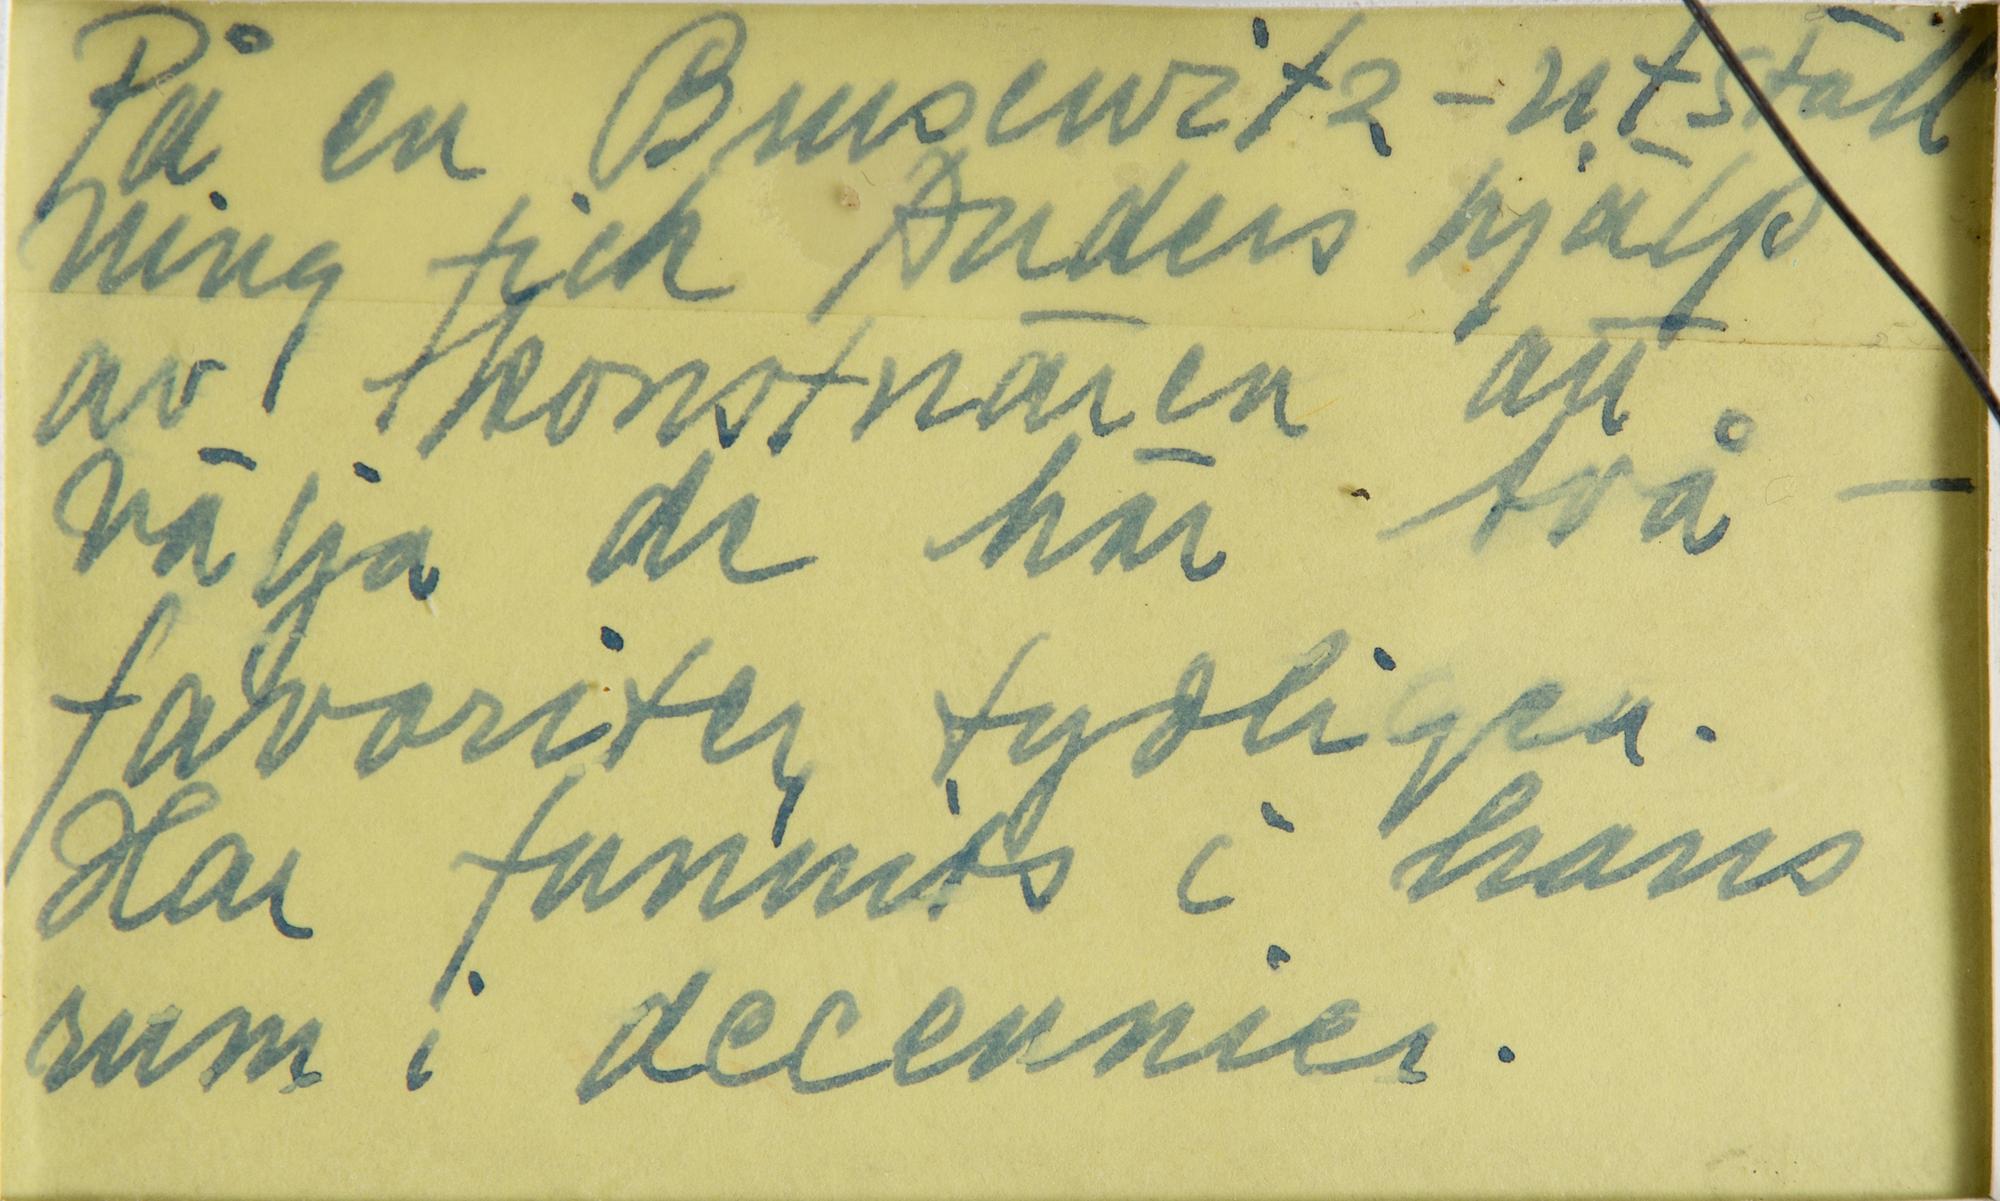 På en Brusewitz-utställ
ning fick Anders hjälp
av konstnären att
välja de här två –
favoriter, tydligen.
Har funnits i hans
rum i decennier.